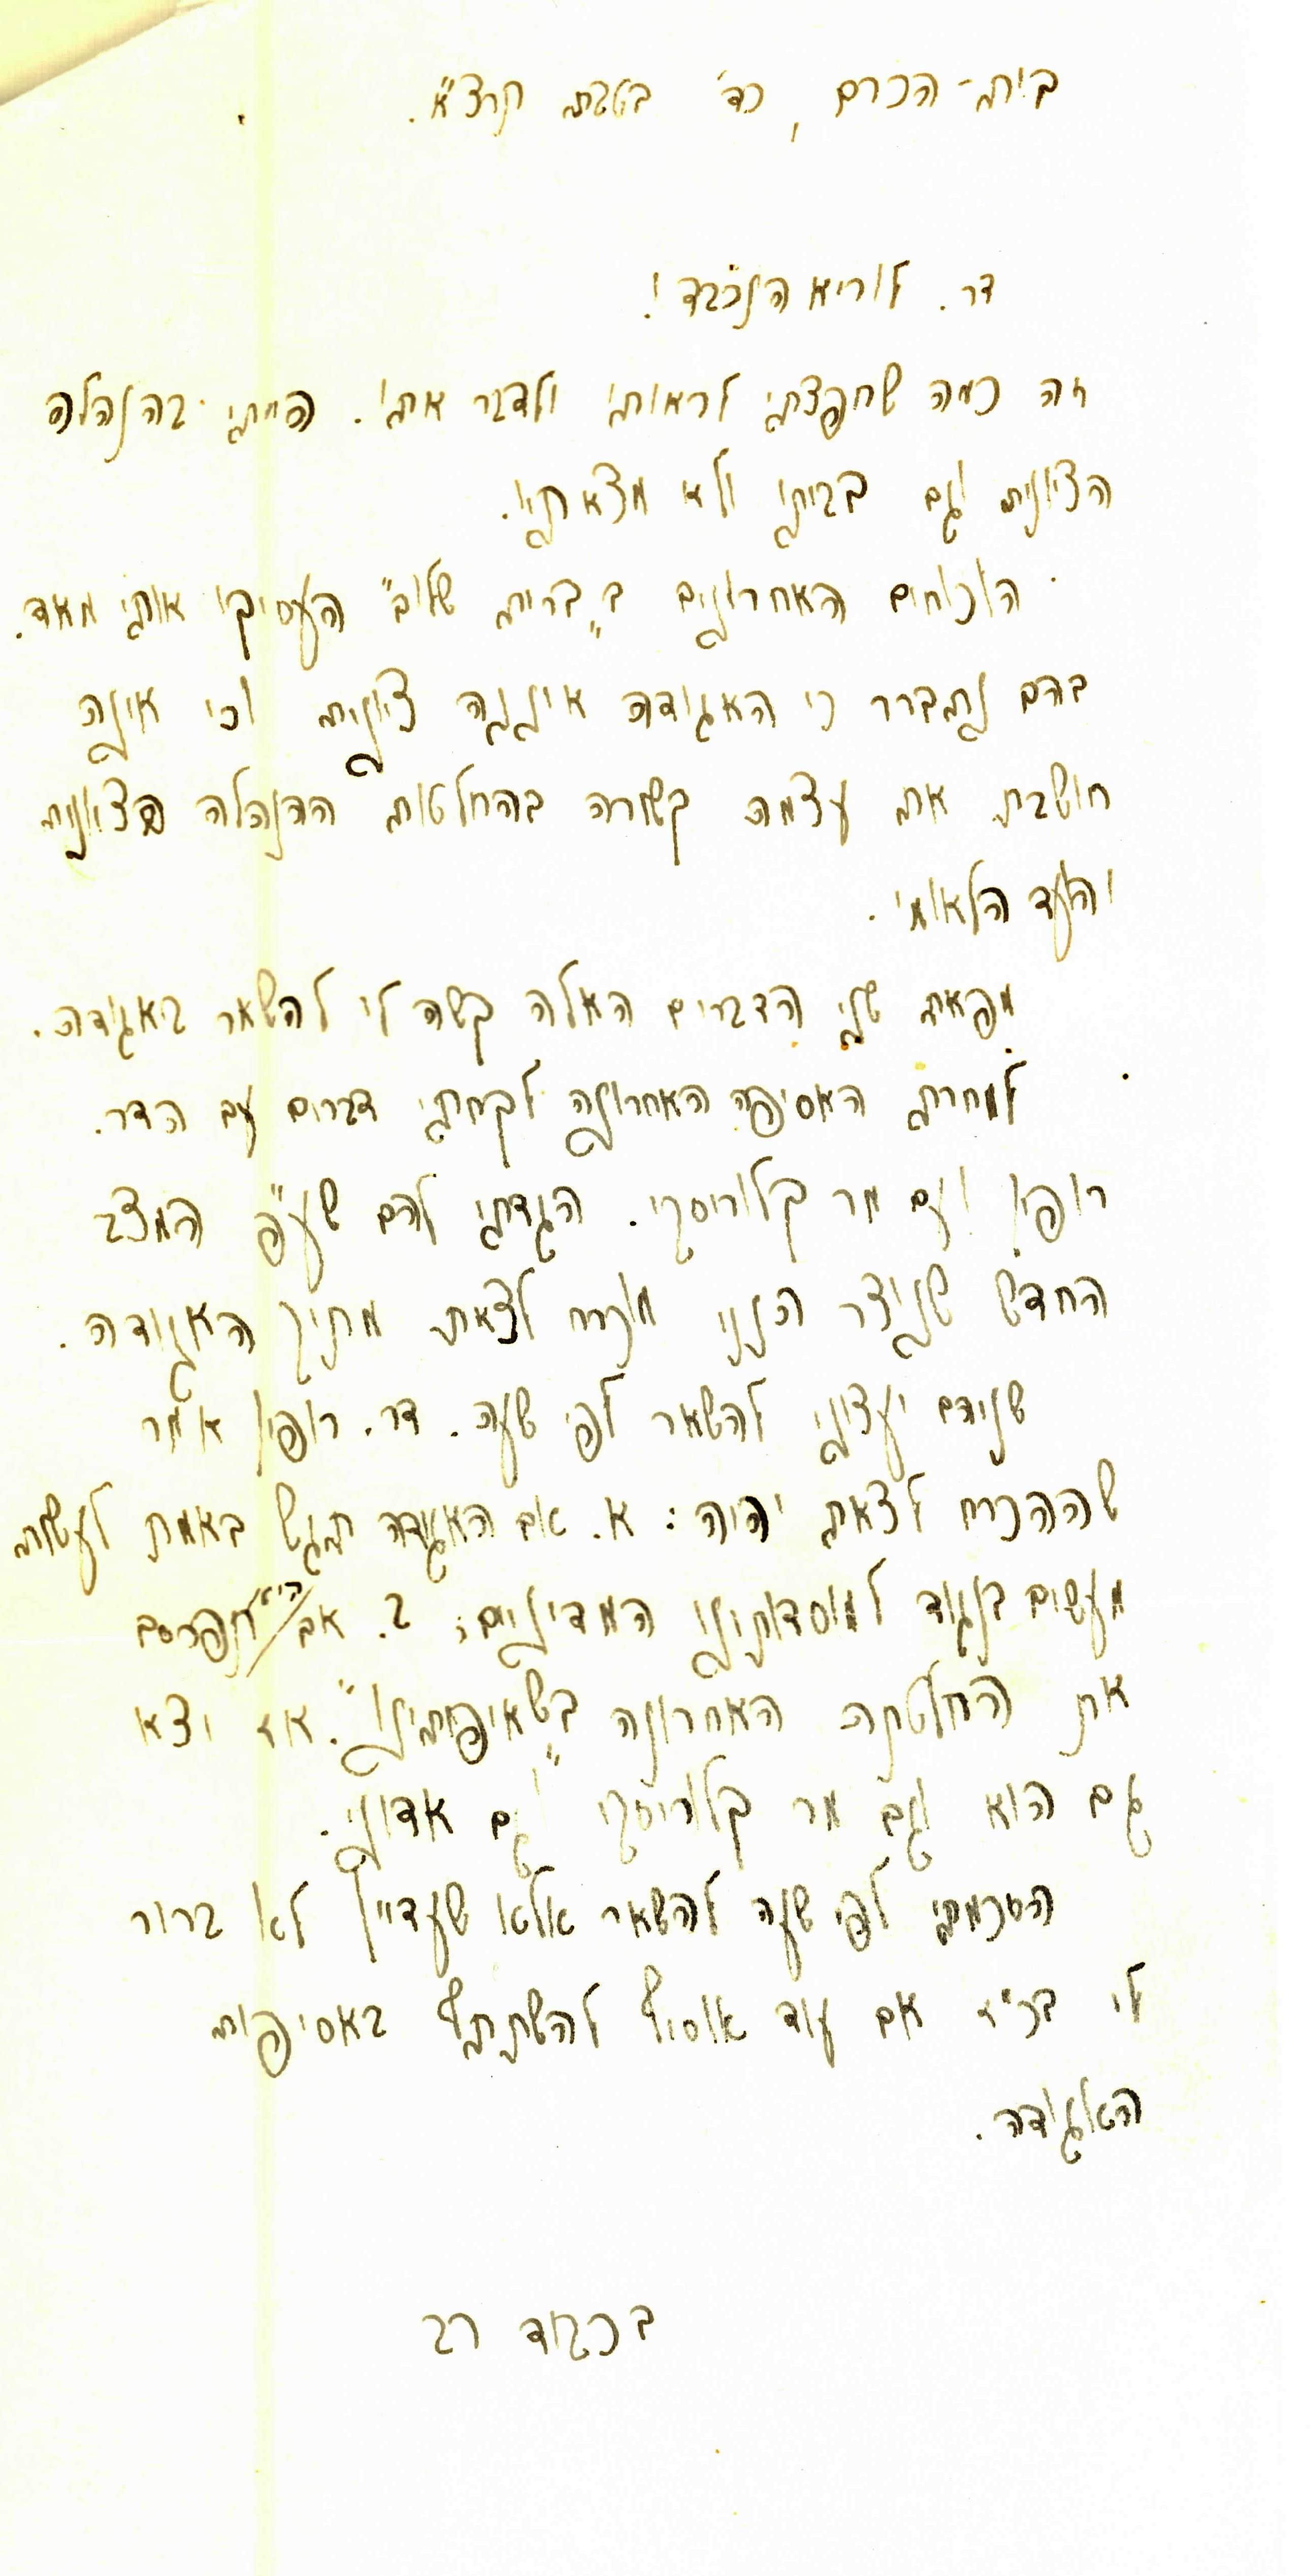 בית-הכרם, כד' בטבת תרצ"א.
דר. לוריא הנכבד!
זה כמה שחפצתי לראותו ולדבר אתו. הייתי בהנהלה
הציונית וגם בביתו ולא מצאתיו.
הוכוחים האחרונים ב"ברית שלום" העסיקו אותי מאד.
בהם נתברר כי האגודה איננה ציונית וכי אינה
חושבת את עצמה קשורה בהחלטות ההנהלה הציונית
והועד הלאומי.
מפאת שני הדברים האלה קשה לי להשאר באגודה.
למחרת האסיפה האחרונה לקחתי דברים עם הדר.
רופין ועם מר קלוריסקי. הגדתי להם שע"פ המצב
החדש שנוצר הנני מוכרח לצאת מתוך האגודה.
שניהם יעצוני להשאר לפי שעה. דר. רופין אמר
שההכרח לצאת יהיה: א. אם האגודה תגש באמת לעשות
מעשים בנגוד למוסדותינו המדיניים; ב. אם היא תפרסם
את החלטתה האחרונה ב"שאיפותינו". אז יצא
גם הוא וגם מר קלוריסקי וגם אדוני.
הסכמתי לפי שעה להשאר אלא שעדיין לא ברור
לי בכ"ז אם עוד אוסיף להשתתף באסיפות
האגודה.
בכבוד רב